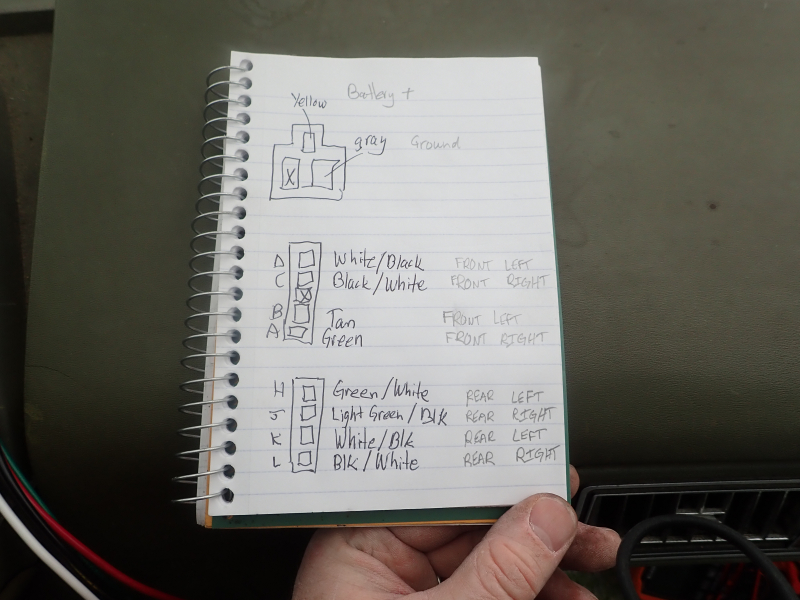 Battery +
Yellow
gray Ground
X
D White/Black FRONT LEFT
C Black/White FRONT RIGHT
X
B Tan FRONT LEFT
A Green FRONT RIGHT
H Green/White REAR LEFT
J Light Green/Blk REAR RIGHT
K White/Blk REAR LEFT
L Blk/White REAR RIGHT